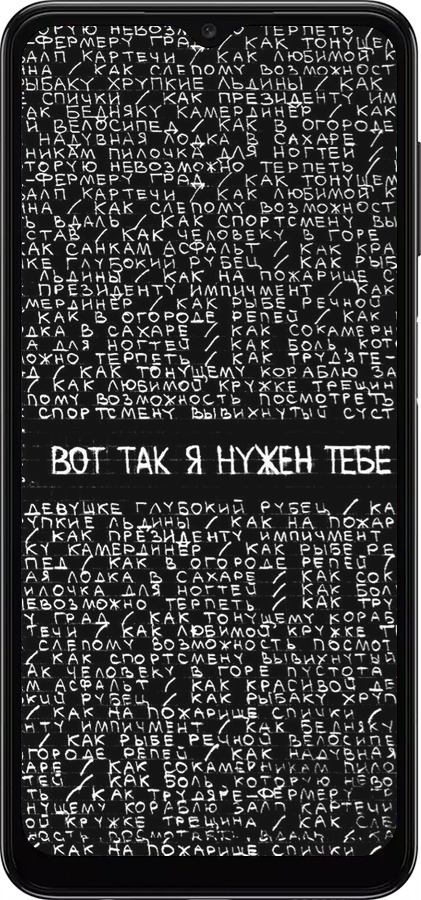 ЮРУЮ НЕВОЗМОЖНО ТЕРПЕТЬ /
ФЕРМЕРУ ГРАД / КАК ТОНУЩЕМ
БАЛП КАРТЕЧИ / КАК ЛЮБИМОЙ К
НА / КАК СЛЕПОМУ ВОЗМОЖНОСТ
ЫБАКУ ХРУПКИЕ ЛЬДИНЫ / КАК
Е СПИЧКИ / КАК ПРЕЗИДЕНТУ ИМ
АК БЕДНЯКУ КАМЕРДИНЕР / КАК
Й ВЕЛОСИПЕД / КАК В ОГОРОДЕ
НАДУВНАЯ ЛОДКА В САХАРЕ /
НИКАМ ПИЛОЧКА ДЛЯ НОГТЕЙ /
ОРУЮ НЕВОЗМОЖНО ТЕРПЕТЬ /
ФЕРМЕРУ ГРАД / КАК ТОНУЩЕМ
АЛП КАРТЕЧИ / КАК ЛЮБИМОЙ К
НА / КАК СЛЕПОМУ ВОЗМОЖНОСТ
Ь ВДАЛЬ / КАК СПОРТСМЕНУ ВЫ
СТАВ / КАК ЧЕЛОВЕКУ В ГОРЕ
КАК САНКАМ АСФАЛЬТ / КАК КРА
КЕ ГЛУБОКИЙ РУБЕЦ / КАК РЫБ
ЛЬДИНЫ / КАК НА ПОЖАРИЩЕ С
ПРЕЗИДЕНТУ ИМПИЧМЕНТ / КАК
МЕРДИНЕР / КАК РЫБЕ РЕЧНОЙ
КАК В ОГОРОДЕ РЕПЕЙ / КАК
ДКА В САХАРЕ / КАК СОКАМЕРН
А ДЛЯ НОГТЕЙ / КАК БОЛЬ КОТ
ОЖНО ТЕРПЕТЬ / КАК ТРУДЯГЕ-
Д / КАК ТОНУЩЕМУ КОРАБЛЮ ЗА
/ КАК ЛЮБИМОЙ КРУЖКЕ ТРЕЩИН
ПОМУ ВОЗМОЖНОСТЬ ПОСМОТРЕТЬ
СПОРТСМЕНУ ВЫВИХНУТЫЙ СУСТ
ВОТ ТАК Я НУЖЕН ТЕБЕ
ДЕВУШКЕ ГЛУБОКИЙ РУБЕЦ / КА
УПКИЕ ЛЬДИНЫ / КАК НА ПОЖАР
/ КАК ПРЕЗИДЕНТУ ИМПИЧМЕНТ
КУ КАМЕРДИНЕР / КАК РЫБЕ РЕ
ПЕД / КАК В ОГОРОДЕ РЕПЕЙ /
АЯ ЛОДКА В САХАРЕ / КАК СОК
ИЛОЧКА ДЛЯ НОГТЕЙ / КАК БОЛ
НЕВОЗМОЖНО ТЕРПЕТЬ / КАК ТРУ
У ГРАД / КАК ТОНУЩЕМУ КОРАБ
ТЕЧИ / КАК ЛЮБИМОЙ КРУЖКЕ Т
ЛЕПОМУ ВОЗМОЖНОСТЬ ПОСМОТ
/ КАК СПОРТСМЕНУ ВЫВИХНУТЫЙ
АК ЧЕЛОВЕКУ В ГОРЕ ПУСТОТА
М АСФАЛЬТ / КАК КРАСИВОЙ ДЕ
КИЙ РУБЕЦ / КАК РЫБАКУ ХРУП
КАК НА ПОЖАРИЩЕ СПИЧКИ /
НТУ ИМПИЧМЕНТ / КАК БЕДНЯКУ
/ КАК РЫБЕ РЕЧНОЙ ВЕЛОСИПЕ
ГОРОДЕ РЕПЕЙ / КАК НАДУВНАЯ
АРЕ / КАК СОКАМЕРНИКАМ ПИЛО
ТЕЙ / КАК БОЛЬ КОТОРУЮ НЕВО
ТЬ / КАК ТРУДЯГЕ-ФЕРМЕРУ ГР
НУЩЕМУ КОРАБЛЮ ЗАЛП КАРТЕЧИ
ОЙ КРУЖКЕ ТРЕЩИНА / КАК СЛЕ
ОСТЬ ПОСМОТРЕТЬ ВДАЛЬ / КАК
КАК НА ПОЖАРИЩЕ СПИЧКИ /